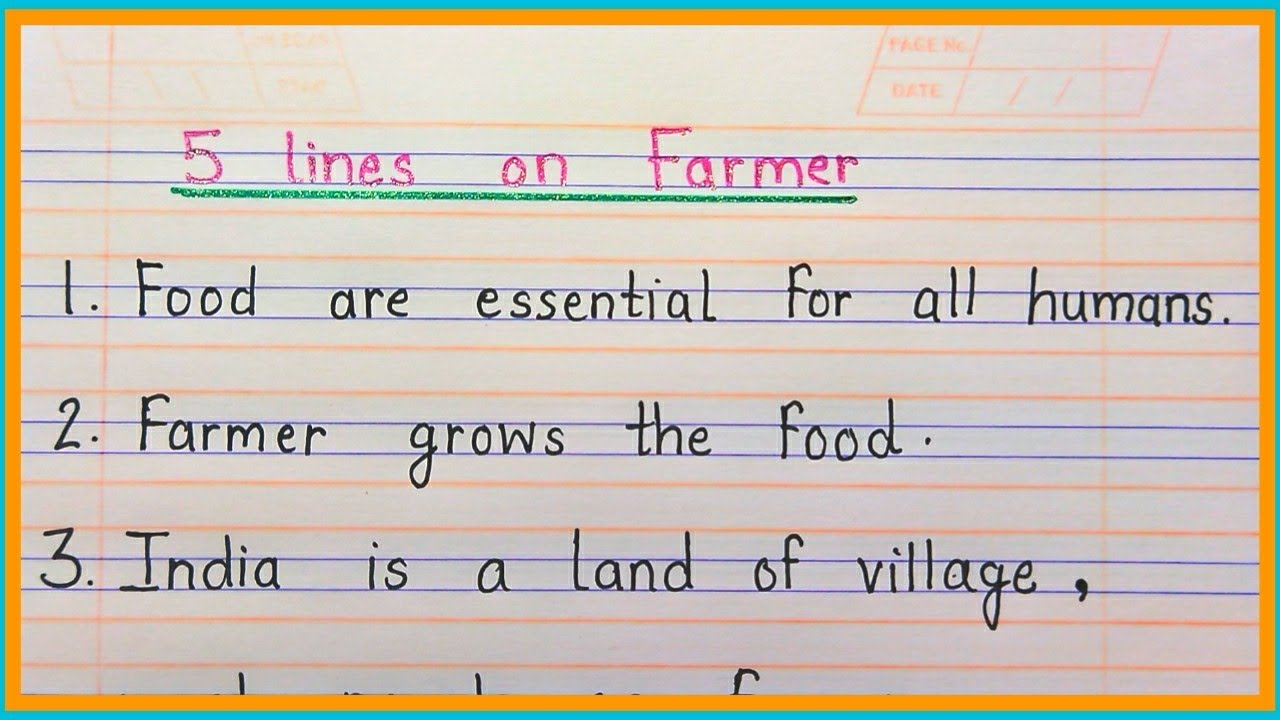 PAGE No.
DATE / /
5 lines on Farmer
1. Food are essential for all humans.
2. Farmer grows the food.
3. India is a land of village,